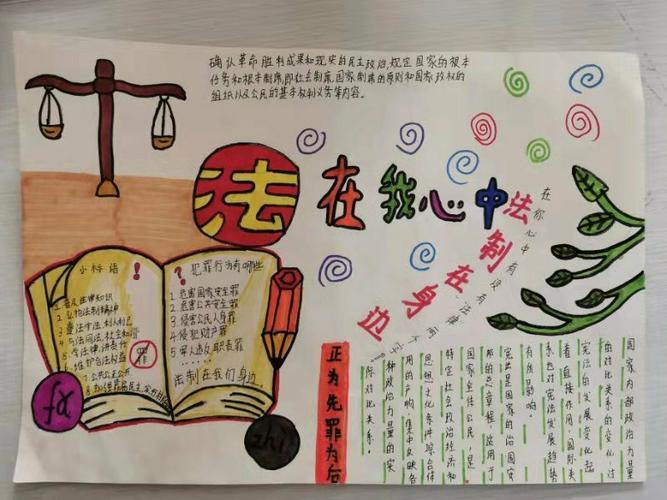 确认革命胜利成果和现实的民主政治,规定国家的根本
任务和根本制度,即社会制度、国家制度的原则和国家政权的
组织以及公民的基本权利义务等内容。
法在我心中
法制在身边
在你心中有没有法律两个字?
小标语!
1.普及法律知识
2.弘扬法制精神
3.遵法守法 利人利己
5.学法律,讲责任
6.维护合法权益
罪
? 犯罪行为有哪些
1.危害国家安全罪
2.危害公共安全罪
3.侵害公民人身罪
4.侵犯财产罪
5.军人违反职责罪
法制在我们身边。
fa
zhi
正为先罪为后
国家内部政治力量
的对比关系的变化,对
宪法的发展变化起
着直接作用,国际关
系也对宪法发展趋势
有所影响。
宪法是国家的治国安
邦的总章程,适用于
国家全体公民,是
特定社会政治经济和
思想文化条件综合作
用的产物,集中反映各
种政治力量的实
际对比关系。